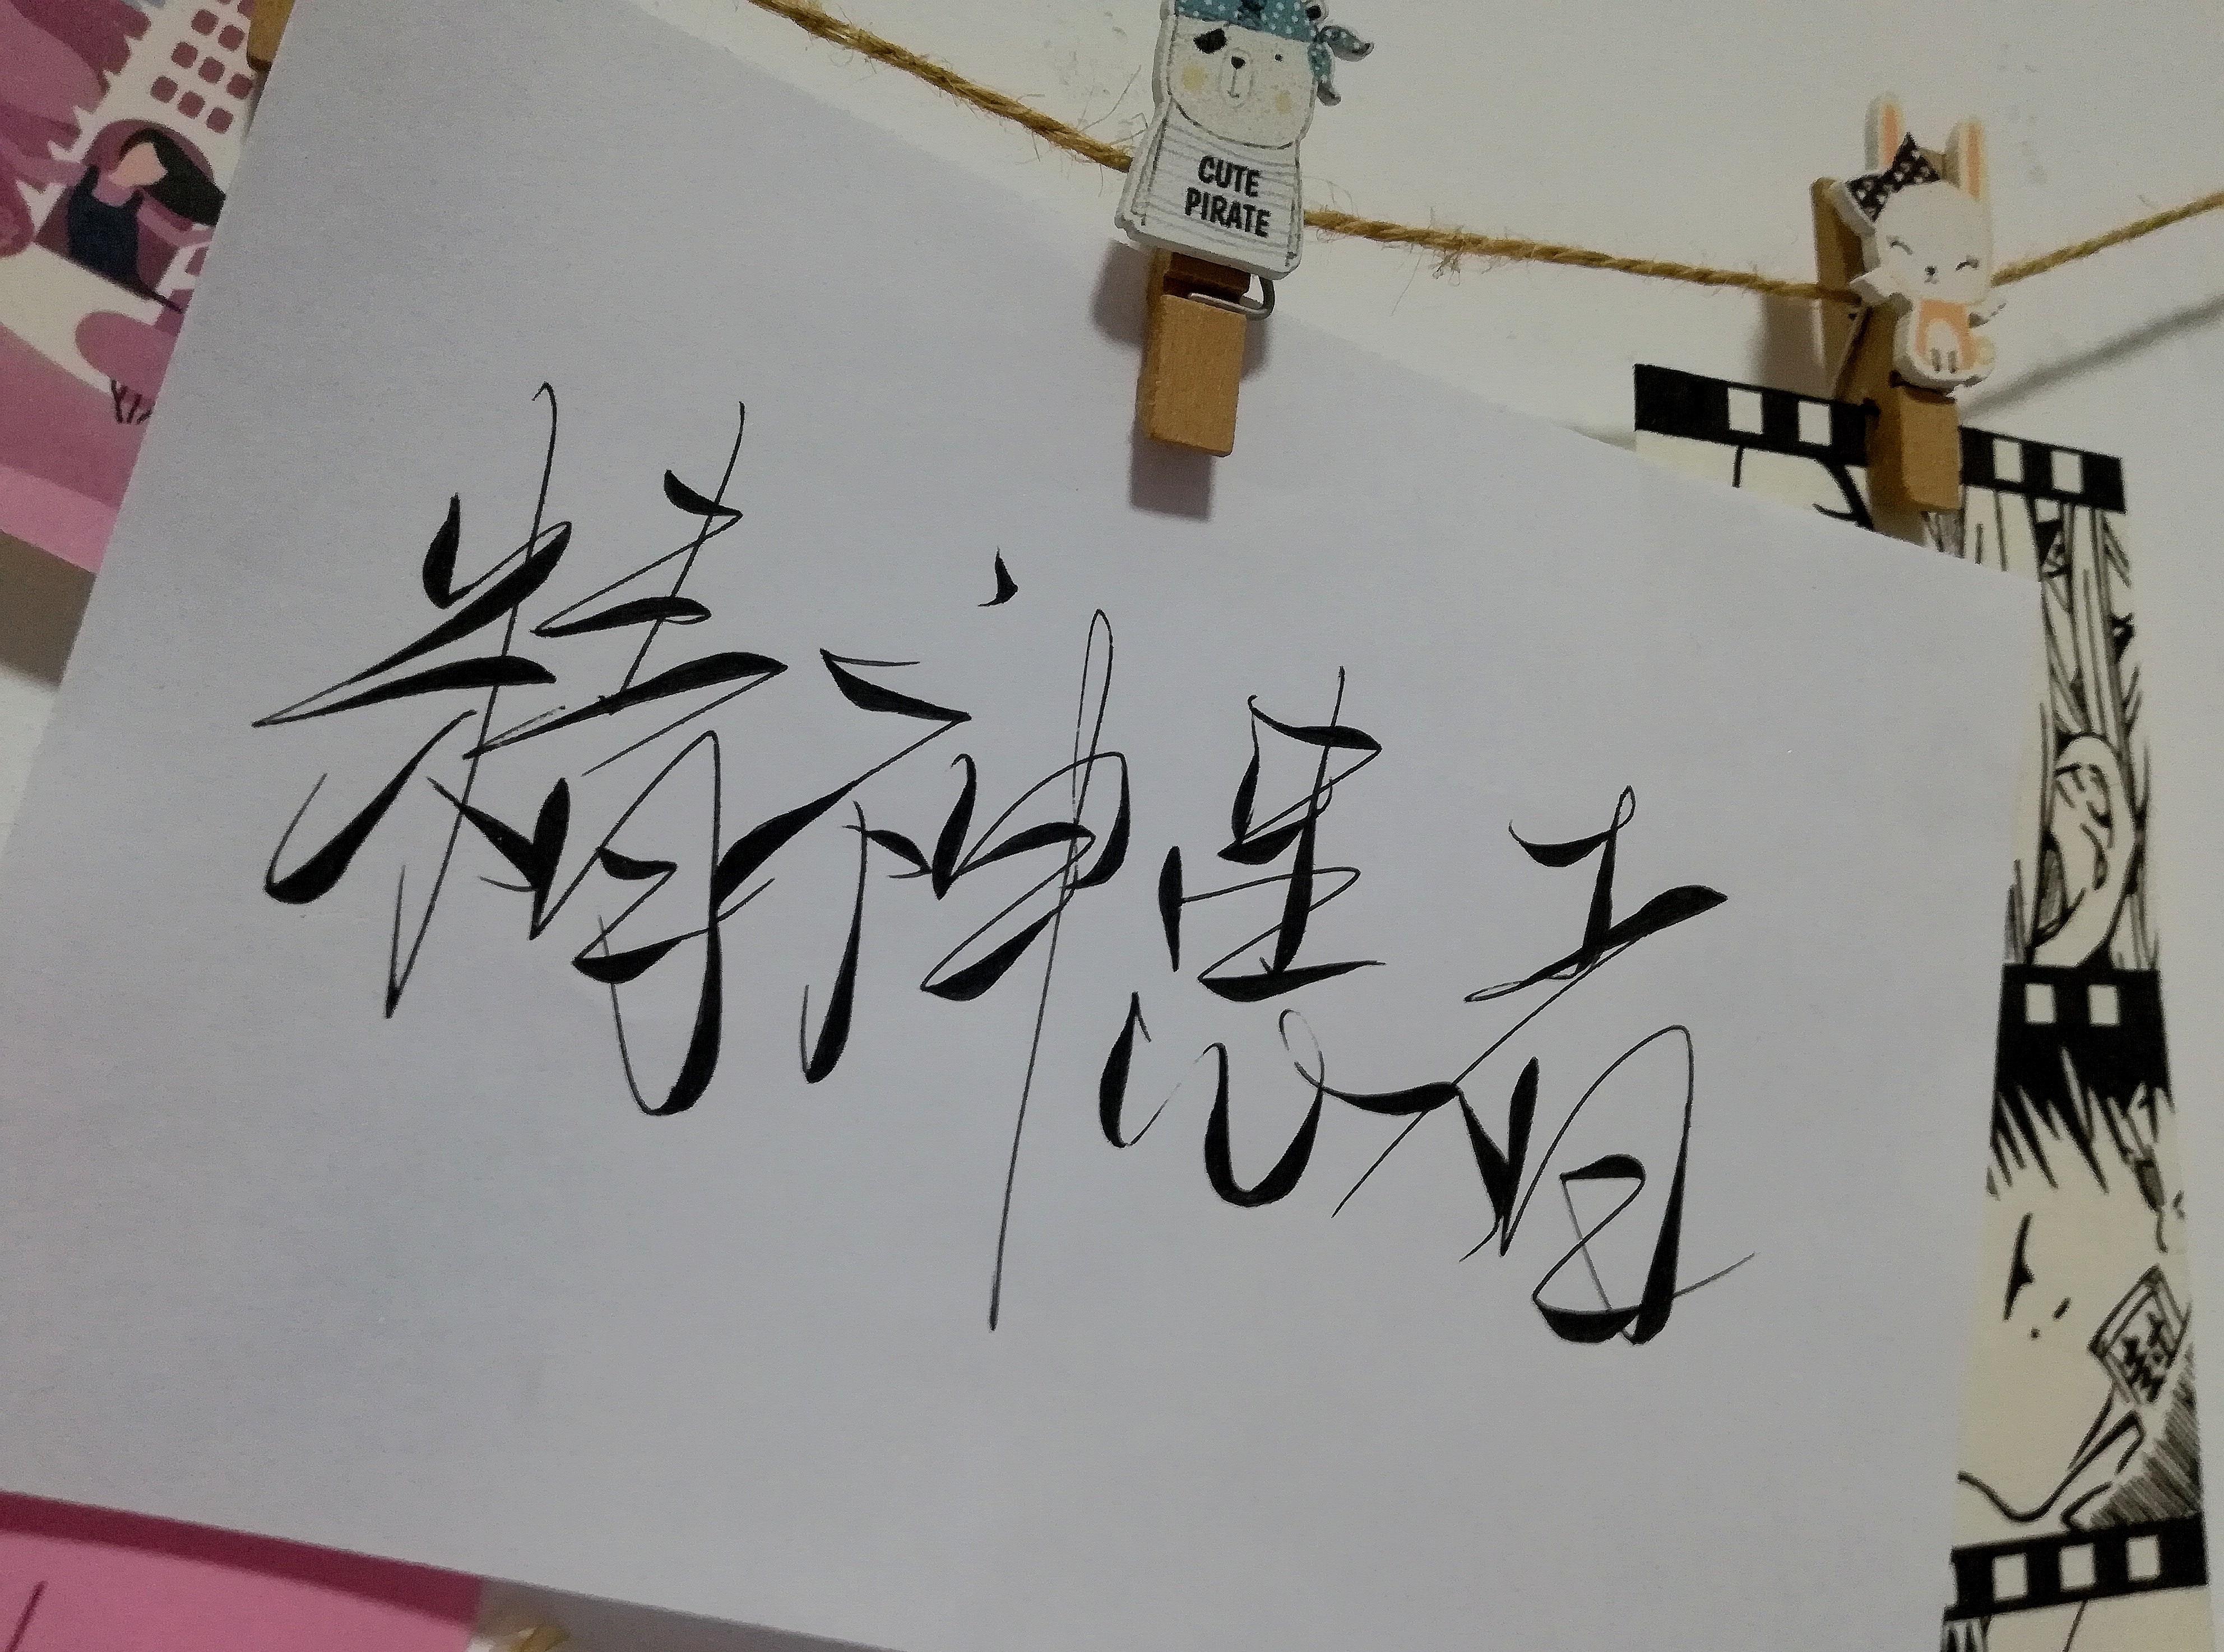 CUTE
PIRATE
精神患者